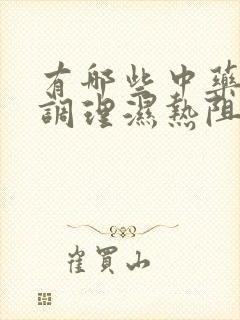 有哪些中藥
調理濕熱阻
崔買山